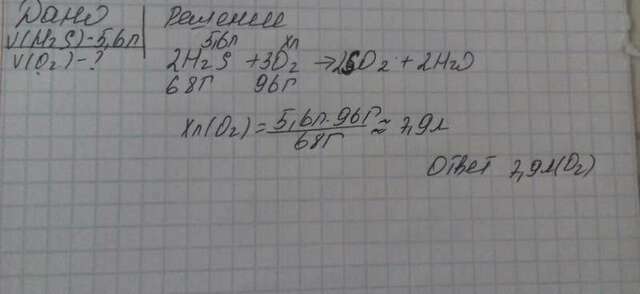 Дано
V(H2S)-5,6л
V(O2)-?
Решение
5,6л хл
2H2S + 3O2 → 2SO2 + 2H2O
68г 96г
Xл(O2) = 5,6л·96г / 68г ≈ 7,9л
Ответ 7,9л(O2)